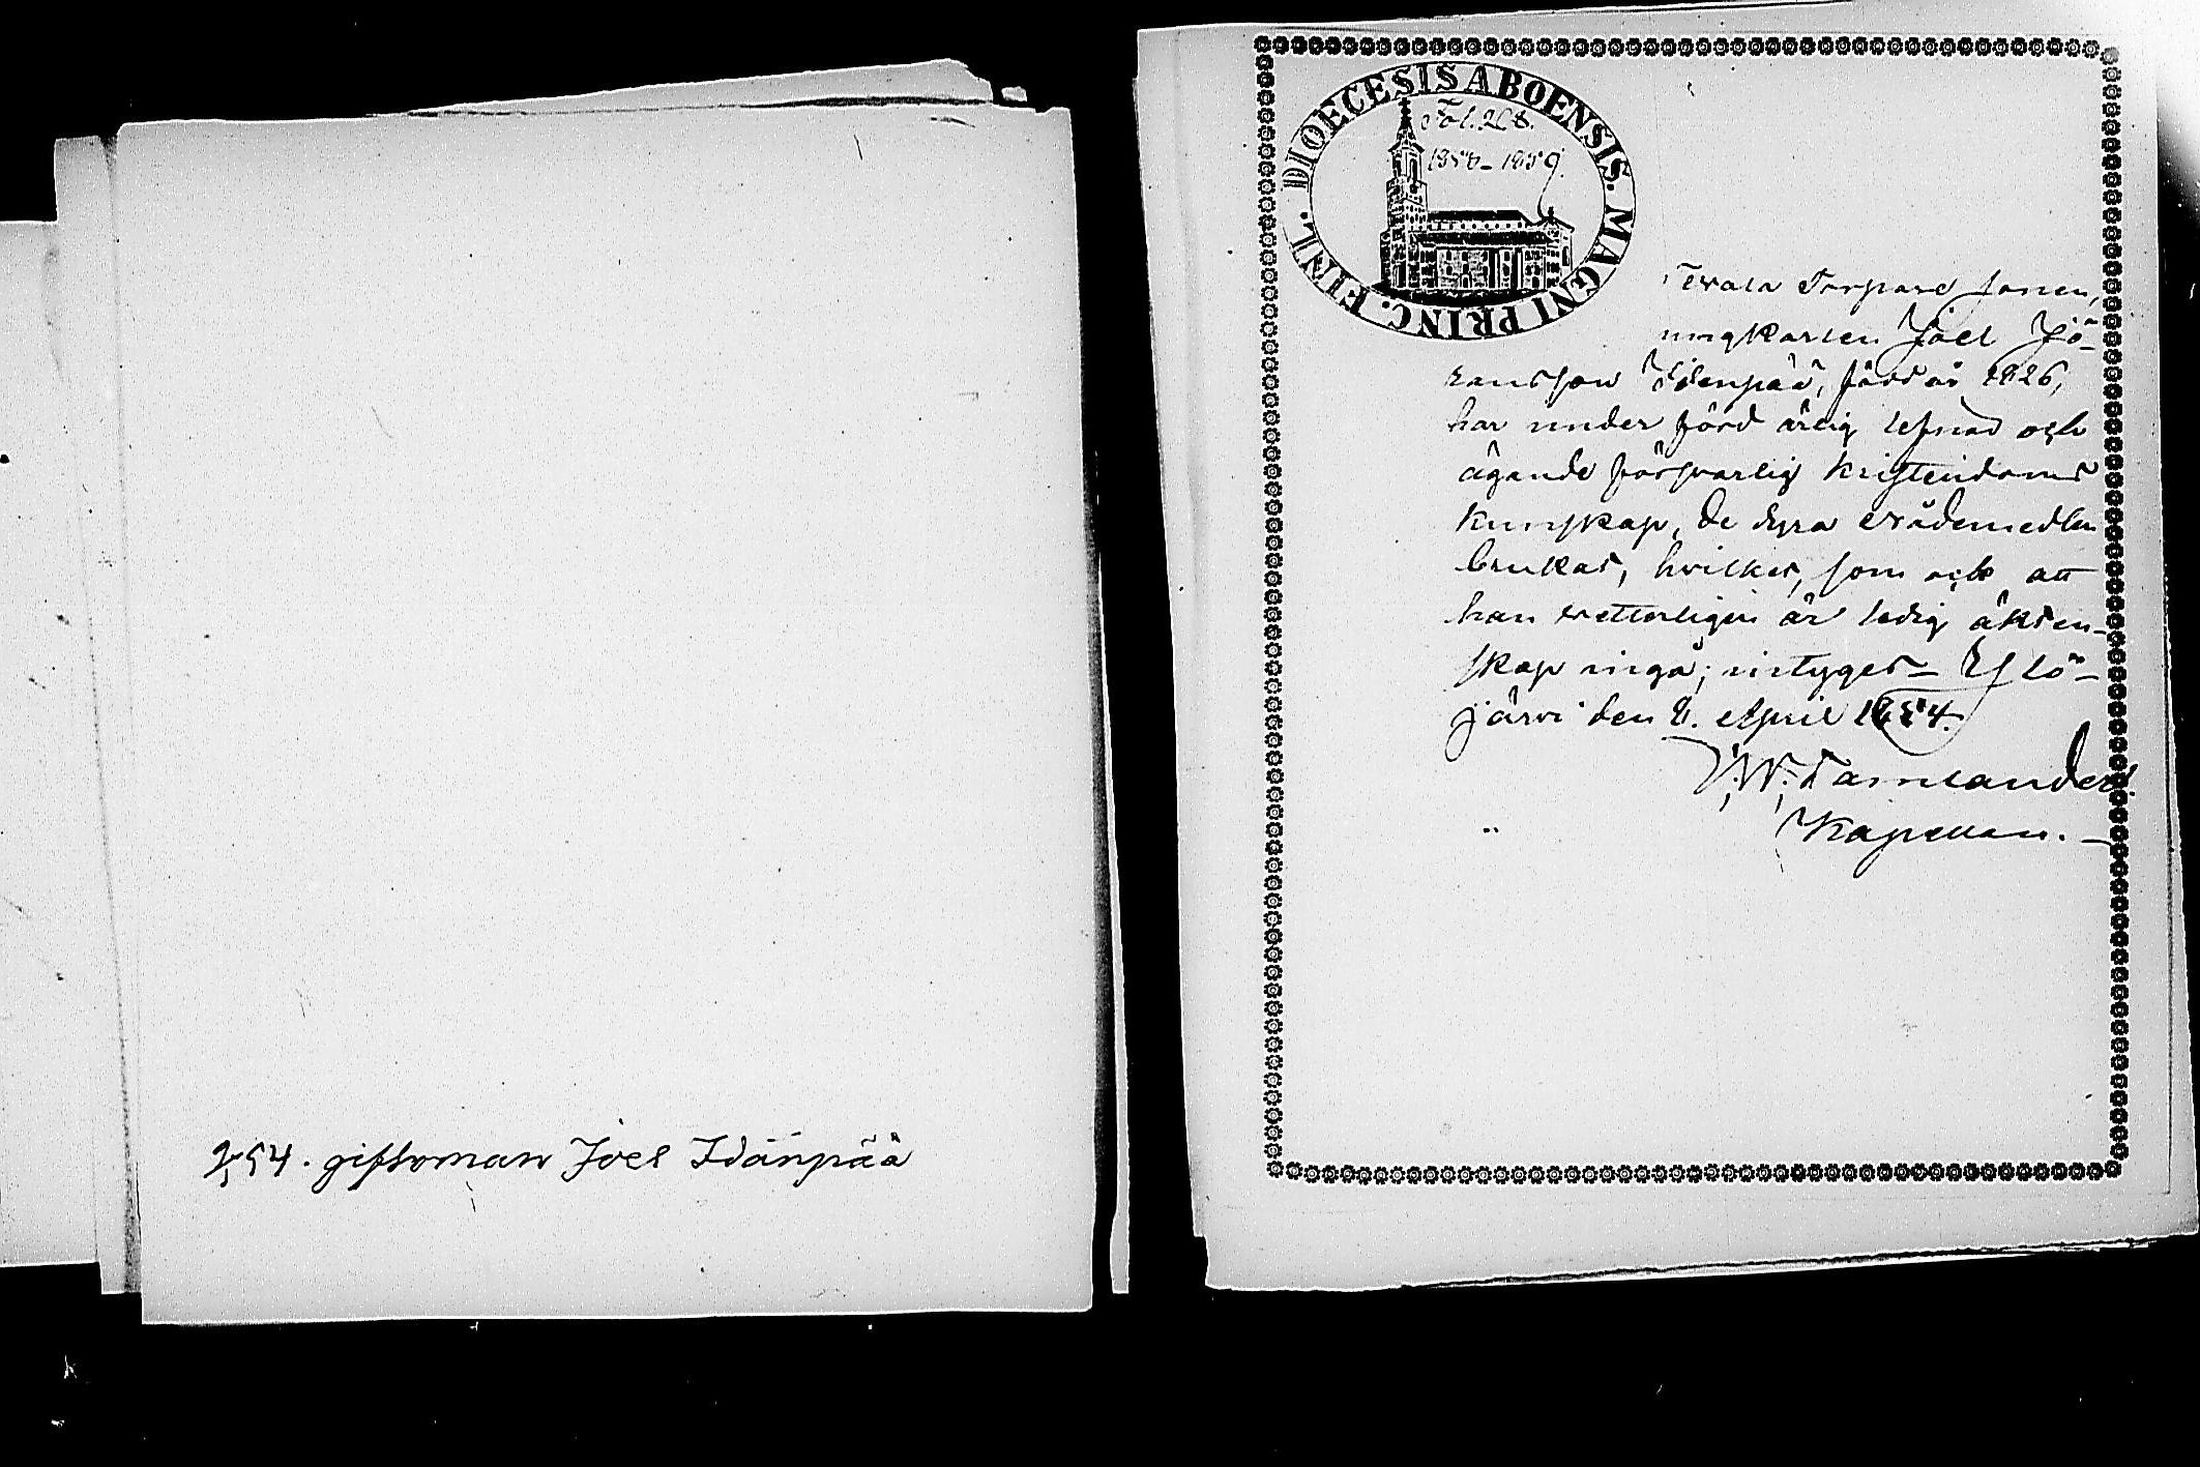 254. giftoman Joel Idänpää
DIOECESIS ABOENSIS. MAGNI PRINC. FINL.
Fol. 208.
1850-1859.
Torpare sonen,
ungkarlen Joel Jö-
ransson Idenpää, född år 1826,
har under förd ärlig lefnad och
ägande försvarlig kristendoms
kunskap, de dyra nådemedlen
brukat, hvilket, som ock att
han vetterligen är ledig äkten-
skap ingå; intygar _ Ylö-
järvi den 8. April 1854.
Kapellan. _